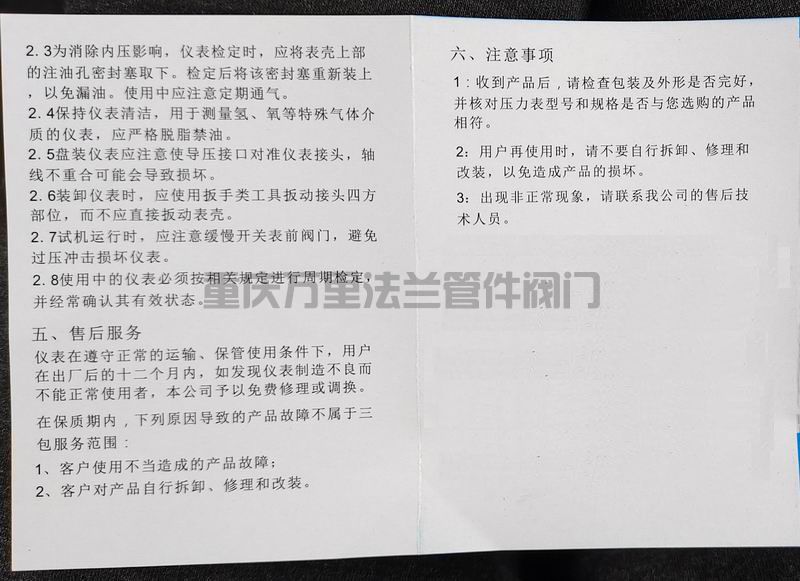 2. 3为消除内压影响，仪表检定时，应将表壳上部
的注油孔密封塞取下。检定后将该密封塞重新装上
，以免漏油。使用中应注意定期通气。
2. 4保持仪表清洁，用于测量氢、氧等特殊气体介
质的仪表，应严格脱脂禁油。
2. 5盘装仪表应注意使导压接口对准仪表接头，轴
线不重合可能会导致损坏。
2. 6装卸仪表时，应使用扳手类工具扳动接头四方
部位，而不应直接扳动表壳。
2. 7试机运行时，应注意缓慢开关表前阀门，避免
过压冲击损坏仪表。
2. 8使用中的仪表必须按相关规定进行周期检定，
并经常确认其有效状态。
五、售后服务
仪表在遵守正常的运输、保管使用条件下，用户
在出厂后的十二个月内，如发现仪表制造不良而
不能正常使用者，本公司予以免费修理或调换。
在保质期内，下列原因导致的产品故障不属于三
包服务范围：
1、客户使用不当造成的产品故障；
2、客户对产品自行拆卸、修理和改装。
六、注意事项
1：收到产品后，请检查包装及外形是否完好，
并核对压力表型号和规格是否与您选购的产品
相符。
2：用户再使用时，请不要自行拆卸、修理和
改装，以免造成产品的损坏。
3：出现非正常现象，请联系我公司的售后技
术人员。
重庆万里法兰管件阀门